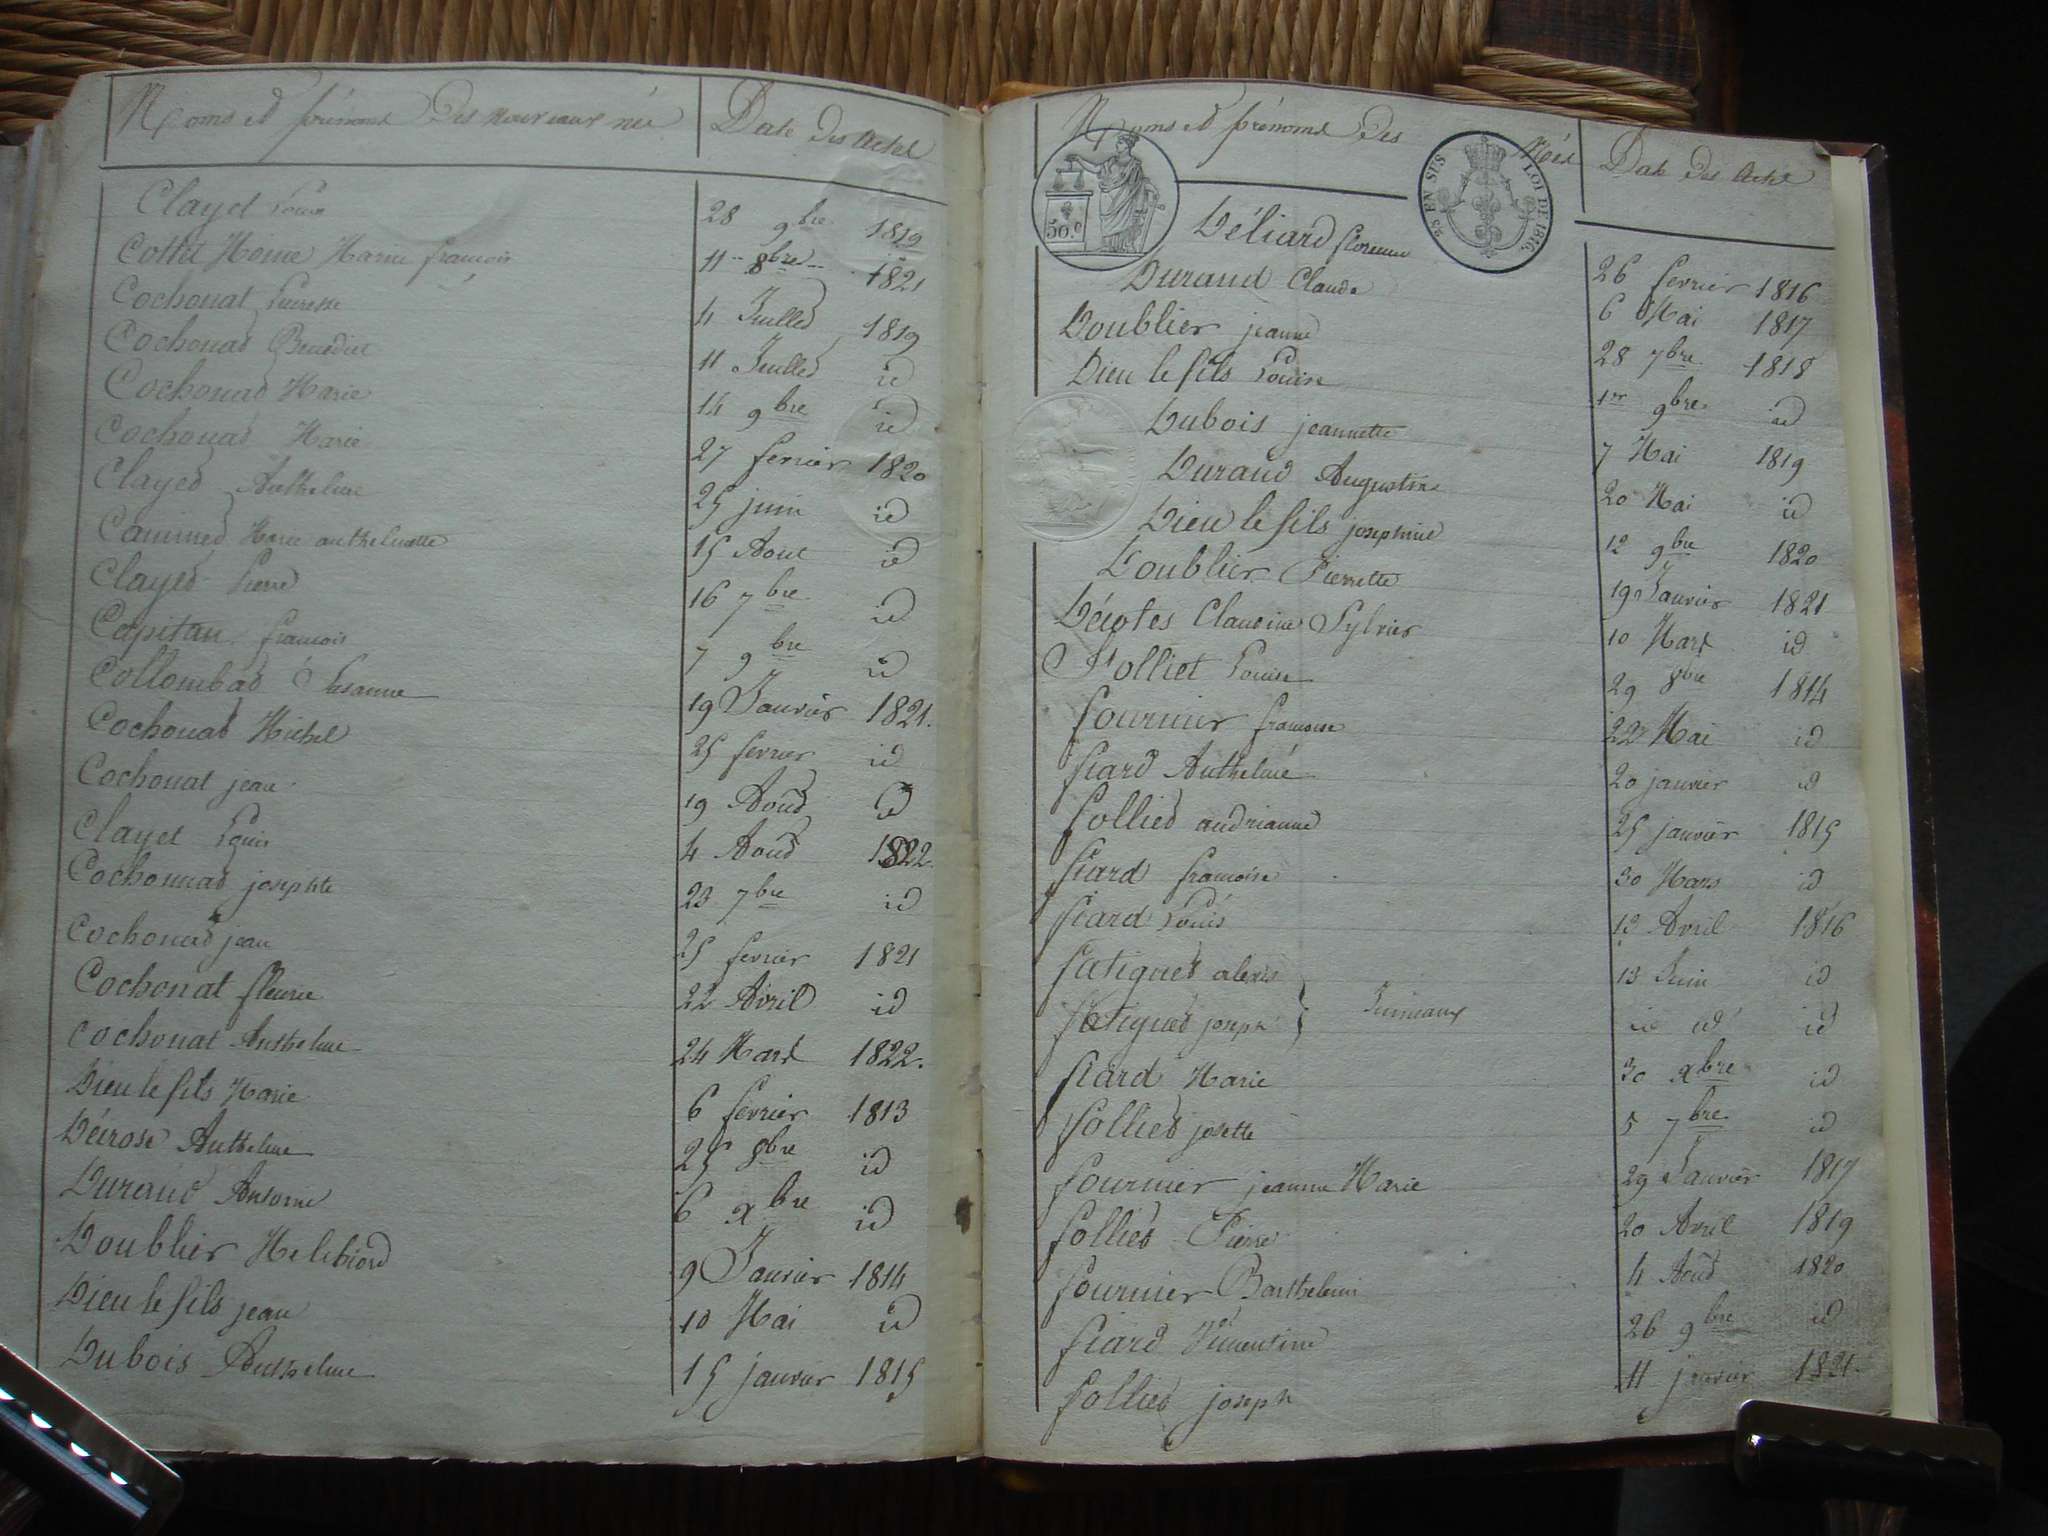 Noms et prénoms Des nouveaux nés Date des Actes
Clayet Louis 28 9bre 1819
Collet Marie françois 11 8bre 1821
Cochonat Pierrette 4 Juillet 1819
Cochonat Benedict 11 Juillet id
Cochonat Marie 14 9bre id
Cochonat Marie 27 fevrier 1820
Clayet Anthelme 25 juin id
Marie anthelmette 15 Aout id
Clayet Pierre 16 7bre id
Capitan françois 7 9bre id
Collombat Susanne 19 Janvier 1821.
Cochonat Michel 25 fevrier id
Cochonat jean 19 Aout id
Clayet Louis 4 Aout 1822.
Cochonnat josephte 23 7bre id
Cochonat jean 25 fevrier 1821
Cochonat fleurie 22 Avril id
Cochonat Anthelme 24 Mars 1822.
Dieu le fils Marie 6 fevrier 1813
Décrose Anthelme 25 8bre id
Durand Antoine 6 xbre id
Doublier 9 Janvier 1814
Dieu le fils jean 10 Mai id
Dubois Anthelme 15 janvier 1815
Noms et prénoms Des Nés Date des Actes
50.c
25 EN SUS LOI DE 1816.
Déliard florence 26 fevrier 1816
Durand Claude 6 Mai 1817
Doublier jeanne 28 7bre 1818
Dieu le fils Louise 1er 9bre id
Dubois jeannette 7 Mai 1819
Durand Augustine 20 Mai id
Dieu le fils josephine 12 9bre 1820
Doublier Pierrette 19 Janvier 1821
Décotes Claudine Sylvie 10 Mars id
Folliet Louise 29 8bre 1814
fournier francoise 22 Mai id
fiard Anthelme 20 janvier id
folliet andrianne 25 janvier 1815
fiard francoise 30 Mars id
fiard Louis 12 Avril 1816
fatiguet alexis 13 Juin id
fatiguet joseph } Jumeaux id id id
fiard Marie 30 xbre id
folliet josette 5 7bre id
fournier jeanne Marie 29 Janvier 1817
folliet Pierre 20 Avril 1819
fournier Barthelemi 4 Aout 1820
fiard 26 9bre id
folliet joseph 11 janvier 1821.